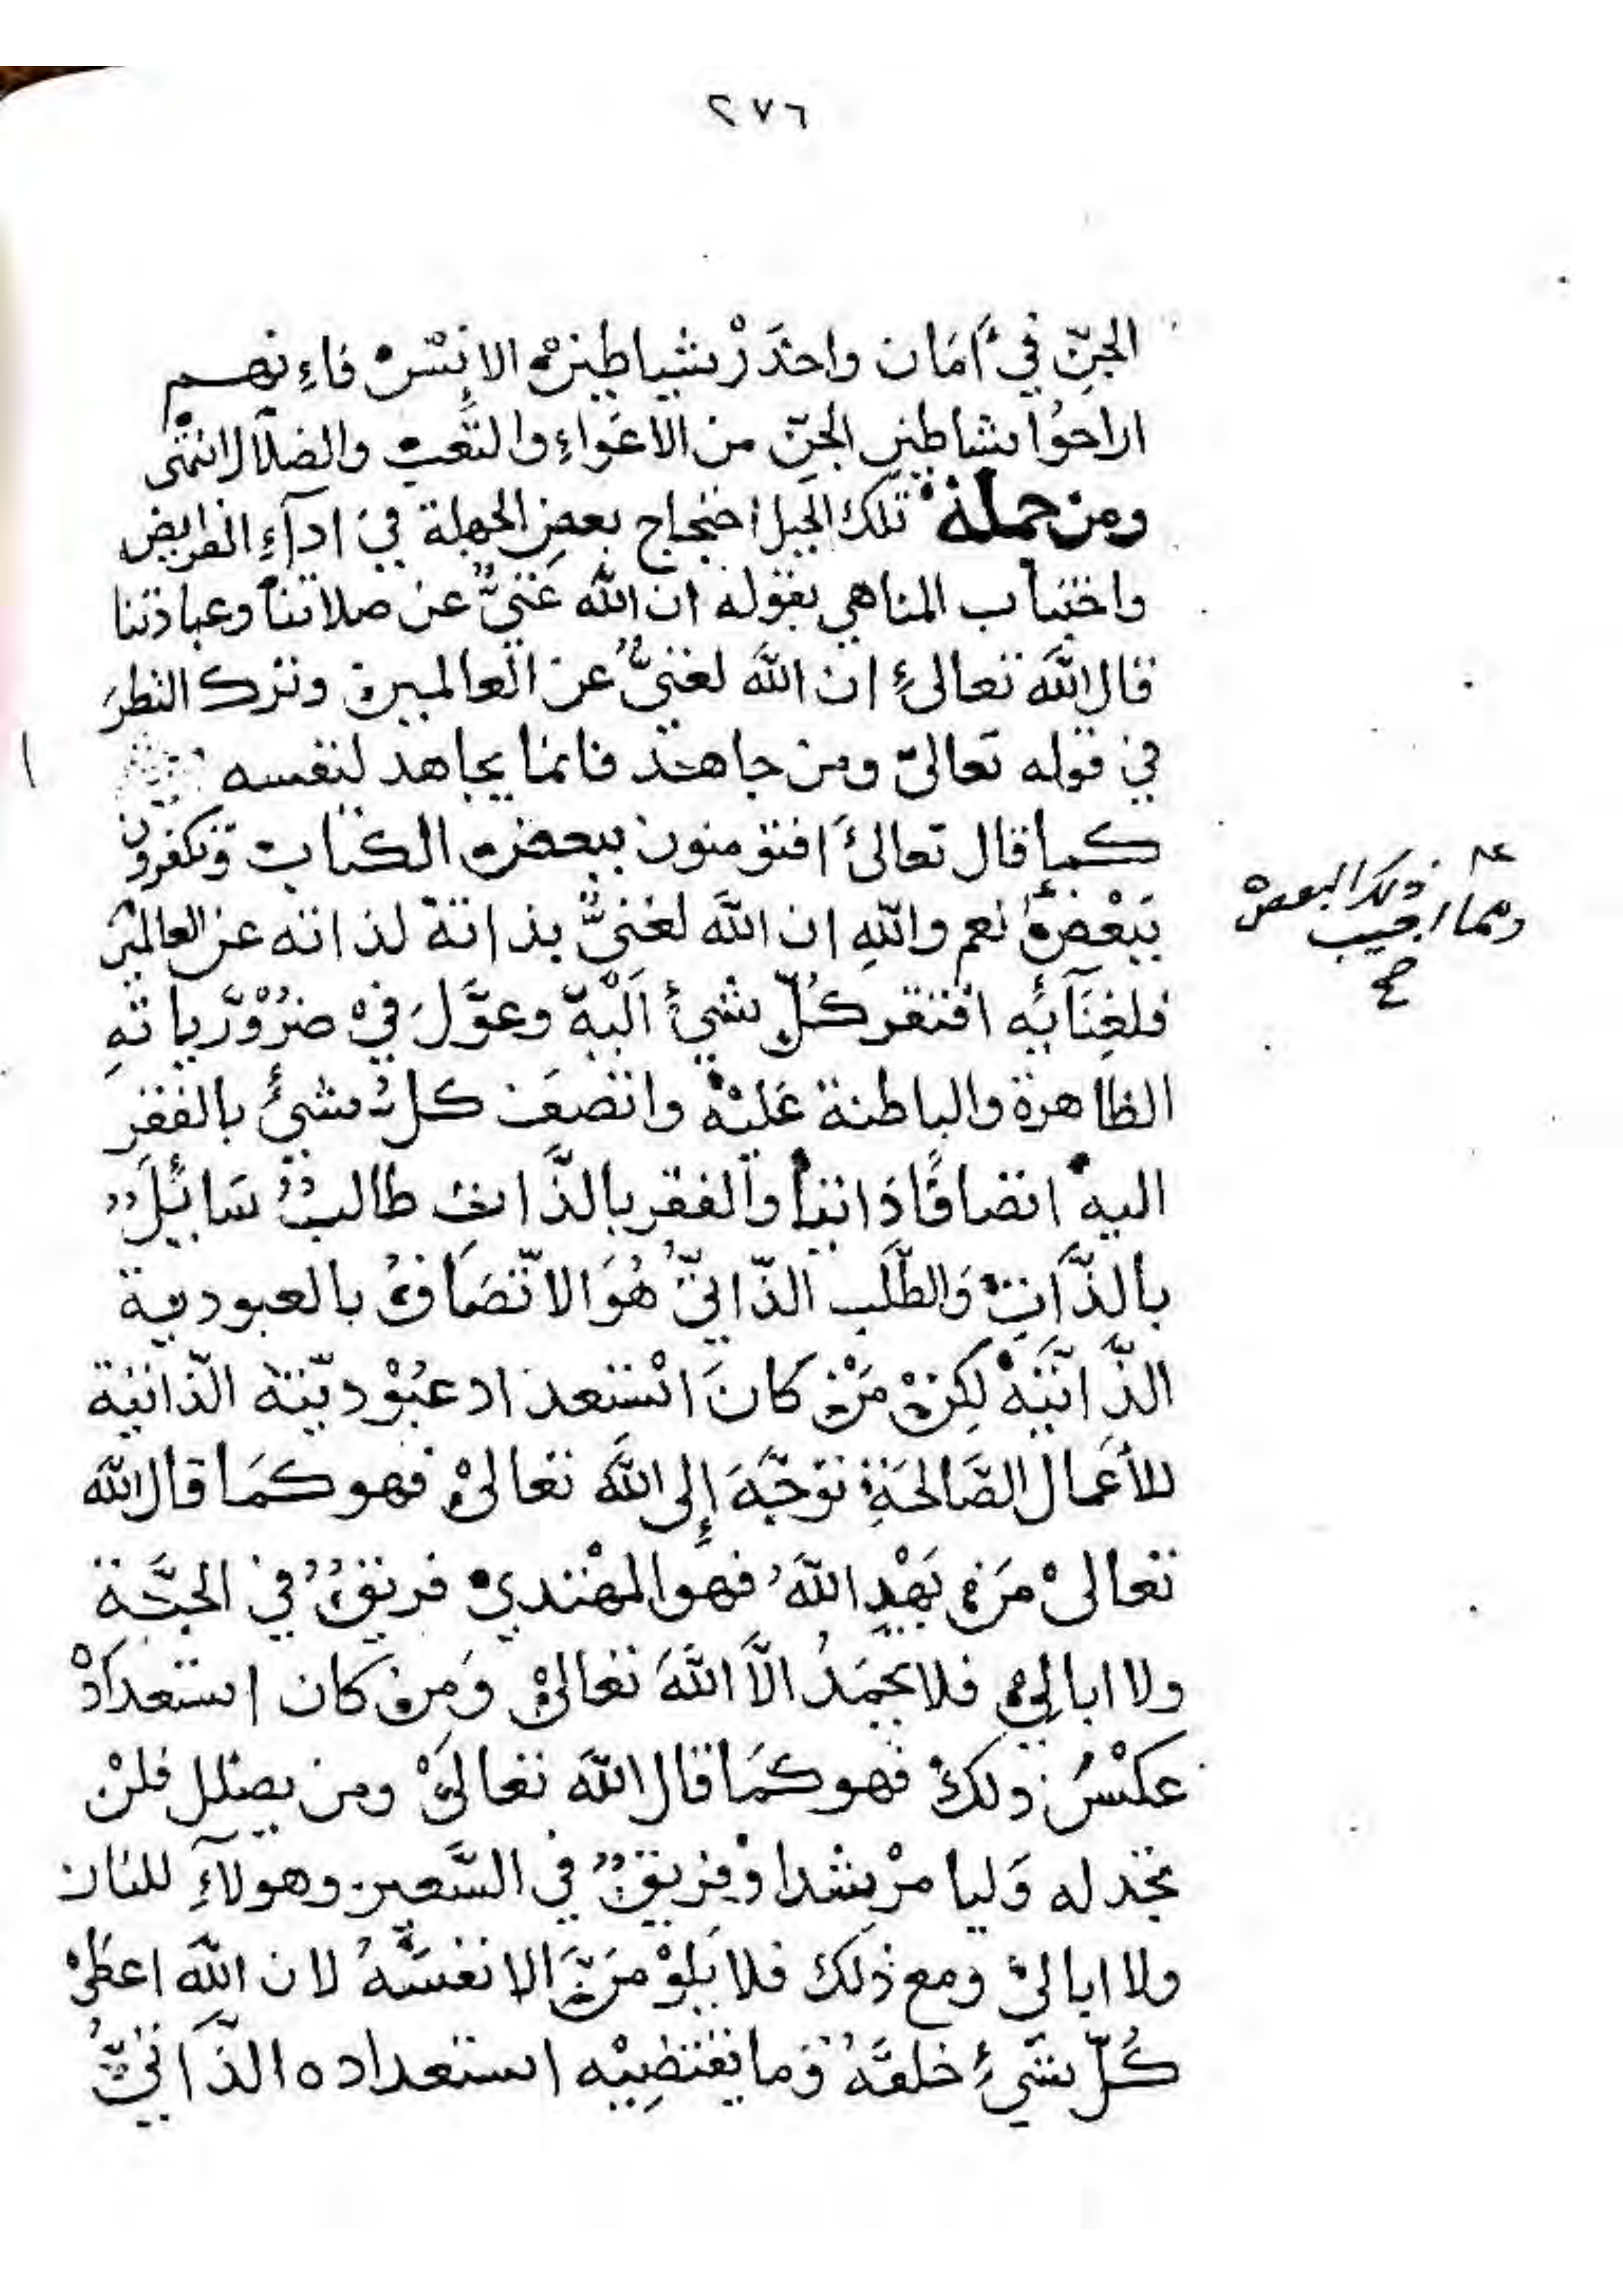 ٢٧٦
الجنّ في أمَان واحذَرْ شياطين الإنسْ فاءِنهم
اراحوُا شاطين الجنّ من الاغوَاءِ والتَّعب والضلاَل انتهى
ومن جملة تلك الحيل احتجاج بعض الجهلة في ادآءِ الفرايض
واختناب المناهي بقوله ان الله غَنيٌّ عن صلاتنا وعبادتنا
قال اللَّه تعالىٰ ان اللَّه لغنيٌّ عن العالمين وترك النظرَ
في قوله تعالىٰ ومن جاهد فانما يجاهد لنفسه
كما قال تعالىٰ افتؤمنون ببعض الكتاب وتكفرون
ببَعْضٍ نعم واللهِ ان اللَّه لغنيٌّ بذاته لذاته عن العالمين
فلغِنَآيِه افتقر كُلّ شيئ اَليه وعوَّلَ فيْ ضرُوْرَّياتهِ
الظاهرة والباطنة عَليْه واتصَف كل شيئ بالفقرِ
اليه اتصافًا ذاتيا والفقر بالذَّات طالبٌ سَايلٌ
بالذَّاتِ وَالطّلَب الذّاتيّ هُوَ الاتّصَافُ بالعبودية
الذَّاتيَّةْ لكِنْ مَنْ كانَ اسْتعداد عبُوْديّته الذّاتية
للأعمال الصَّالحَةِ توَجَّهَ إلى اللَّه تعالىْ فهو كمَا قال اللَّه
تعالىْ مَن يَهْدِ اللَّهُ فهو المهْتدي فريقٌ في الجنَّة
ولا اباليْ فلا يحمَدُ الَّا اللَّهَ تعالىْ وَمن كان استعدَادْ
عكسُ ذلك فهو كمَا قال اللَّه تعالىَْ ومن يضلل فلنْ
تجد له وَليا مرْشدا وْفريقٌ في السَّعير وهولآءِ للنار
ولا اباليْ ومع ذلك فلا يَلوْمَنَّ الا نفسَهُ لان اللَّه اعطىْ
كُلّ شيْءٍ خلقهُ وَما يقتضِيْه استعداده الذَّاتيُّ
ذلك البعض
ومما اجيب
صح